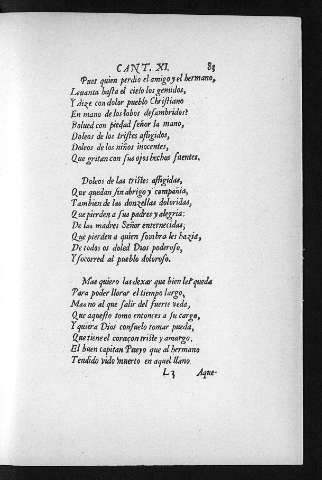 CANT. XI. 83
Pues quien perdio el amigo y el hermano,
Leuanta hasta el cielo los gemidos,
Y dize con dolor pueblo Christiano
En mano de los lobos desambridos?
Bolued con piedad señor la mano,
Doleos de los tristes afligidos,
Doleos de los niños inocentes,
Que gritan con sus ojos hechos fuentes.
Doleos de las tristes afligidas,
Que quedan sin abrigo y compañia,
Tambien de las donzellas doloridas,
Que pierden a sus padres y alegria:
De las madres Señor enternecidas,
Que pierden a quien sombra les hazia,
De todos os doled Dios poderoso,
Y socorred al pueblo doloroso.
Mas quiero las dexar que bien les queda
Para poder llorar el tiempo largo,
Mas no al que salir del fuerte veda,
Que aquesto tomo entonces a su cargo,
Y quiera Dios consuelo tomar pueda,
Que tiene el coraçon triste y amargo,
El buen capitan Pueyo que al hermano
Tendido vido muerto en aquel llano.
L3 Aque-